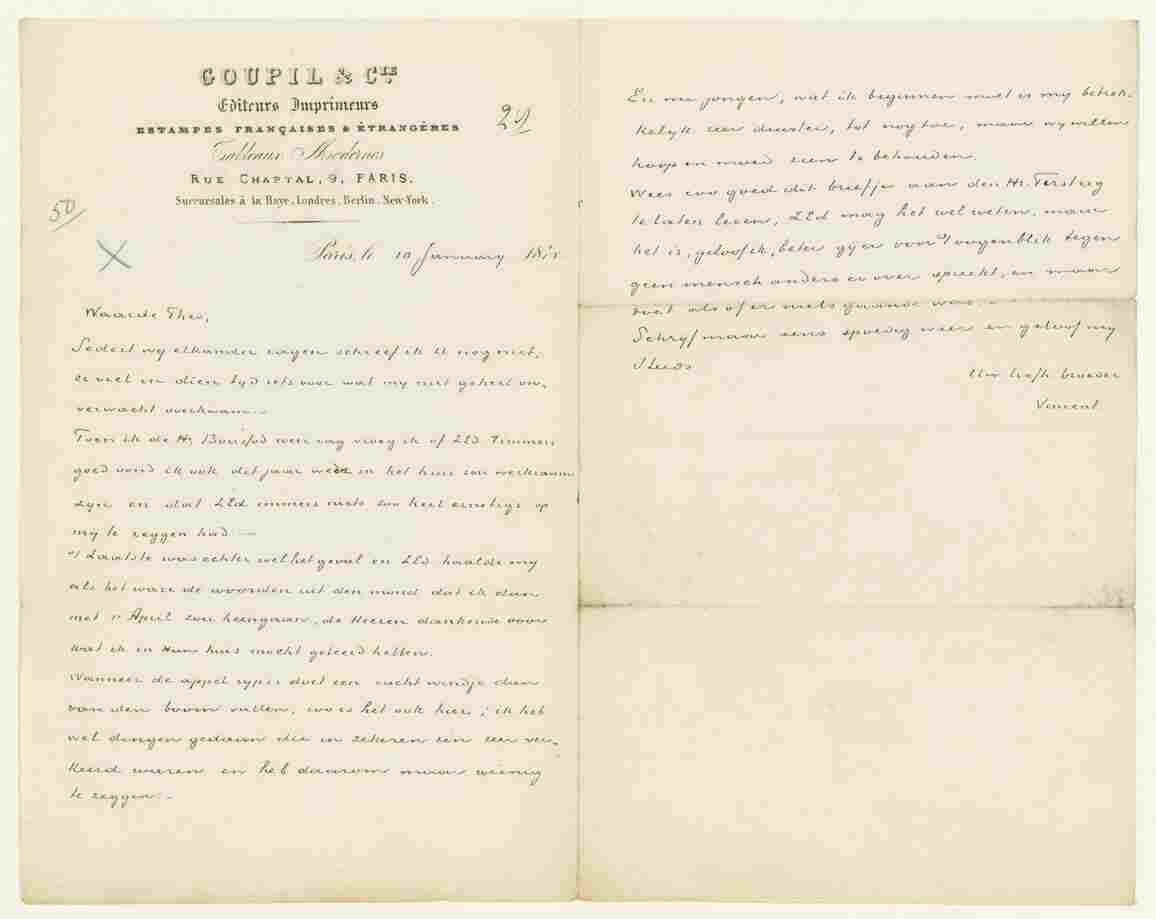 GOUPIL & CIE
Editeurs Imprimeurs
ESTAMPES FRANÇAISES & ÉTRANGÈRES
Tableaux Modernes
RUE CHAPTAL, 9, PARIS.
Succursales à la Haye, Londres, Berlin, New-York.
50
Paris, le 10 January 187
Waarde Theo,
Sedert wy elkander zagen schreef ik U nog niet,
er viel in dien tyd iets voor wat my niet geheel on-
verwacht overkwam.-
Toen ik de Hr Boussod weer zag vroeg ik of ZEd 't immers
goed vond ik ook dit jaar weder in het huis zou werkzaam
zyn en dat ZEd immers niets zoo heel ernstigs op
mij te zeggen had —
't Laatste was echter wel het geval en ZEd haalde my
als het ware de woorden uit den mond dat ik dan
met 1° April zou heengaan, de Heeren dankende voor
wat ik in Hun huis mocht geleerd hebben.
Wanneer de appel ryp is doet een zacht windje dien
van den boom vallen, zoo is het ook hier; ik heb
wel dingen gedaan die in zekeren zin zeer ver-
keerd waren en heb daarom maar weinig
te zeggen.-
En nu jongen, wat ik beginnen moet is my betrek-
kelyk zeer duister, tot nog toe, maar wy willen
hoop en moed zien te behouden.
Wees zoo goed dit briefje aan den Hr. Tersteeg
te laten lezen, ZEd mag het wel weten, maar
het is, geloof ik, beter gy er voor 't oogenblik tegen
geen mensch anders er over spreekt, en maar
doet als of er niets gaande was.-
Schryf maar eens spoedig weer en geloof my
steeds
Uw liefh. broeder
Vincent